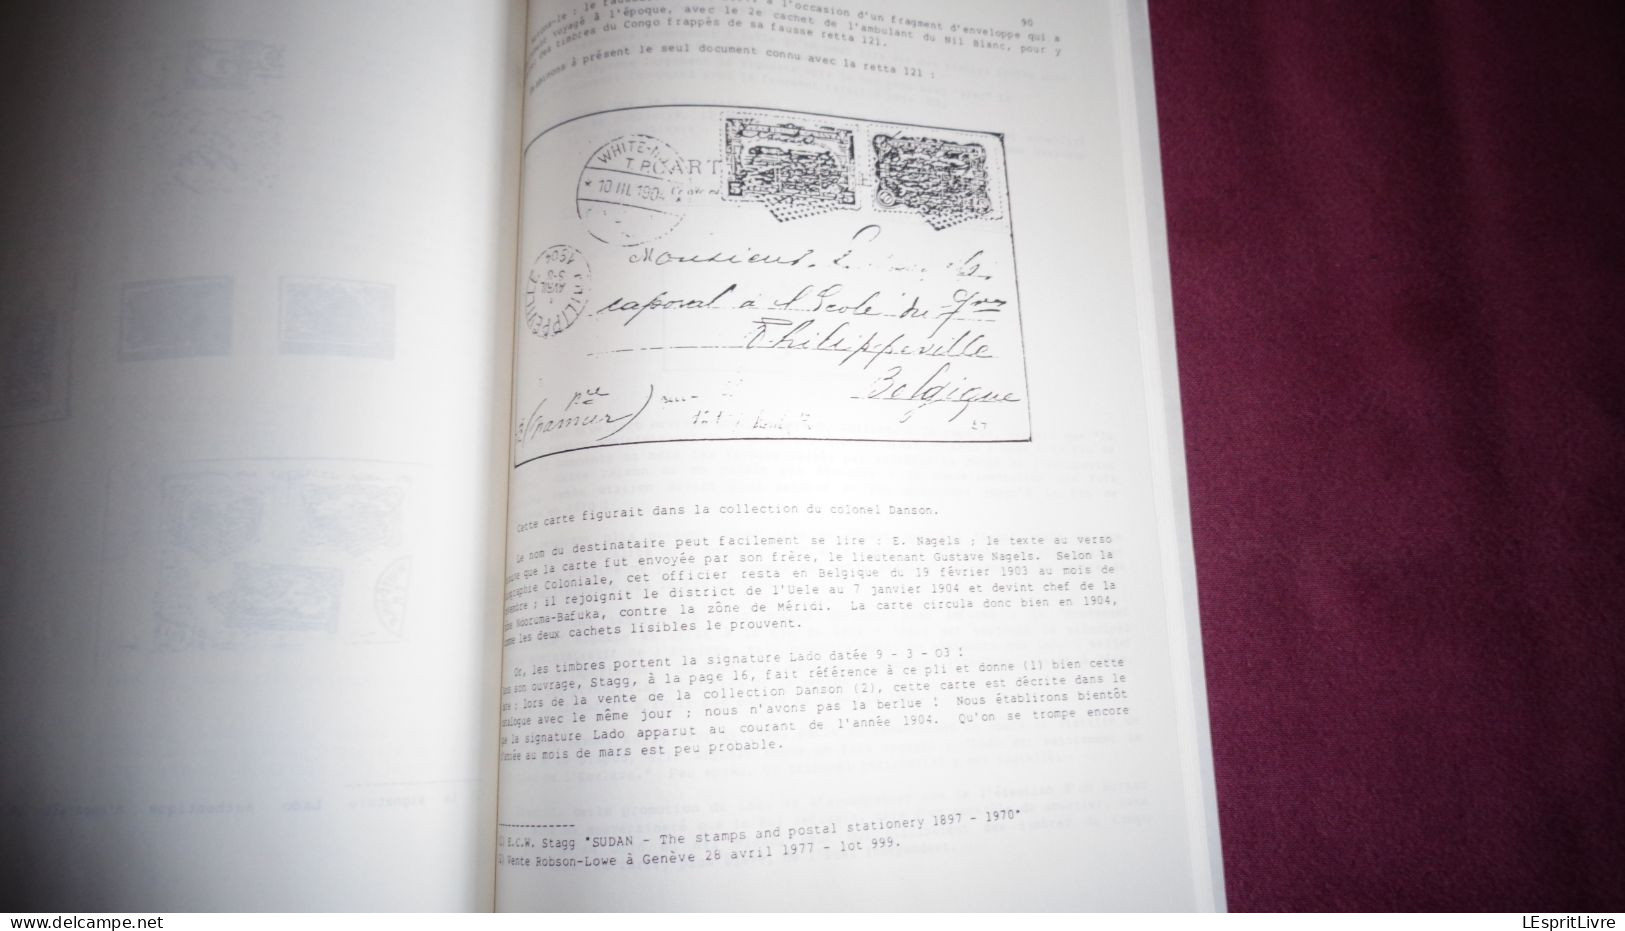 90
à l'occasion d'un fragment d'enveloppe qui a
voyagé à l'époque, avec le 2e cachet de l'ambulant du Nil Blanc, pour y
des timbres du Congo frappés de sa fausse retta 121.
à présent le seul document connu avec la retta 121 :
WHITE-N
T.P. CART
10 III. 1904
PHILIPPEVILLE
AVRIL
1904
Monsieur
caporal à l'Ecole du
Philippeville
Belgique
(Namur)
Cette carte figurait dans la collection du colonel Danson.
Le nom du destinataire peut facilement se lire : E. Nagels ; le texte au verso
que la carte fut envoyée par son frère, le lieutenant Gustave Nagels. Selon la
Coloniale, cet officier resta en Belgique du 19 février 1903 au mois de
; il rejoignit le district de l'Uele au 7 janvier 1904 et devint chef de la
Ndoruma-Bafuka, contre la zône de Méridi. La carte circula donc bien en 1904,
les deux cachets lisibles le prouvent.
Or, les timbres portent la signature Lado datée 9 - 3 - 03 !
son ouvrage, Stagg, à la page 16, fait référence à ce pli et donne (1) bien cette
; lors de la vente de la collection Danson (2), cette carte est décrite dans le
catalogue avec le même jour ; nous n'avons pas la berlue ! Nous établirons bientôt
la signature Lado apparut au courant de l'année 1904. Qu'on se trompe encore
d'année au mois de mars est peu probable.
(1) E.C.W. Stagg "SUDAN - The stamps and postal stationery 1897 - 1970"
(2) Vente Robson-Lowe à Genève 28 avril 1977 - lot 999.
delcampe.net
LEspritLivre